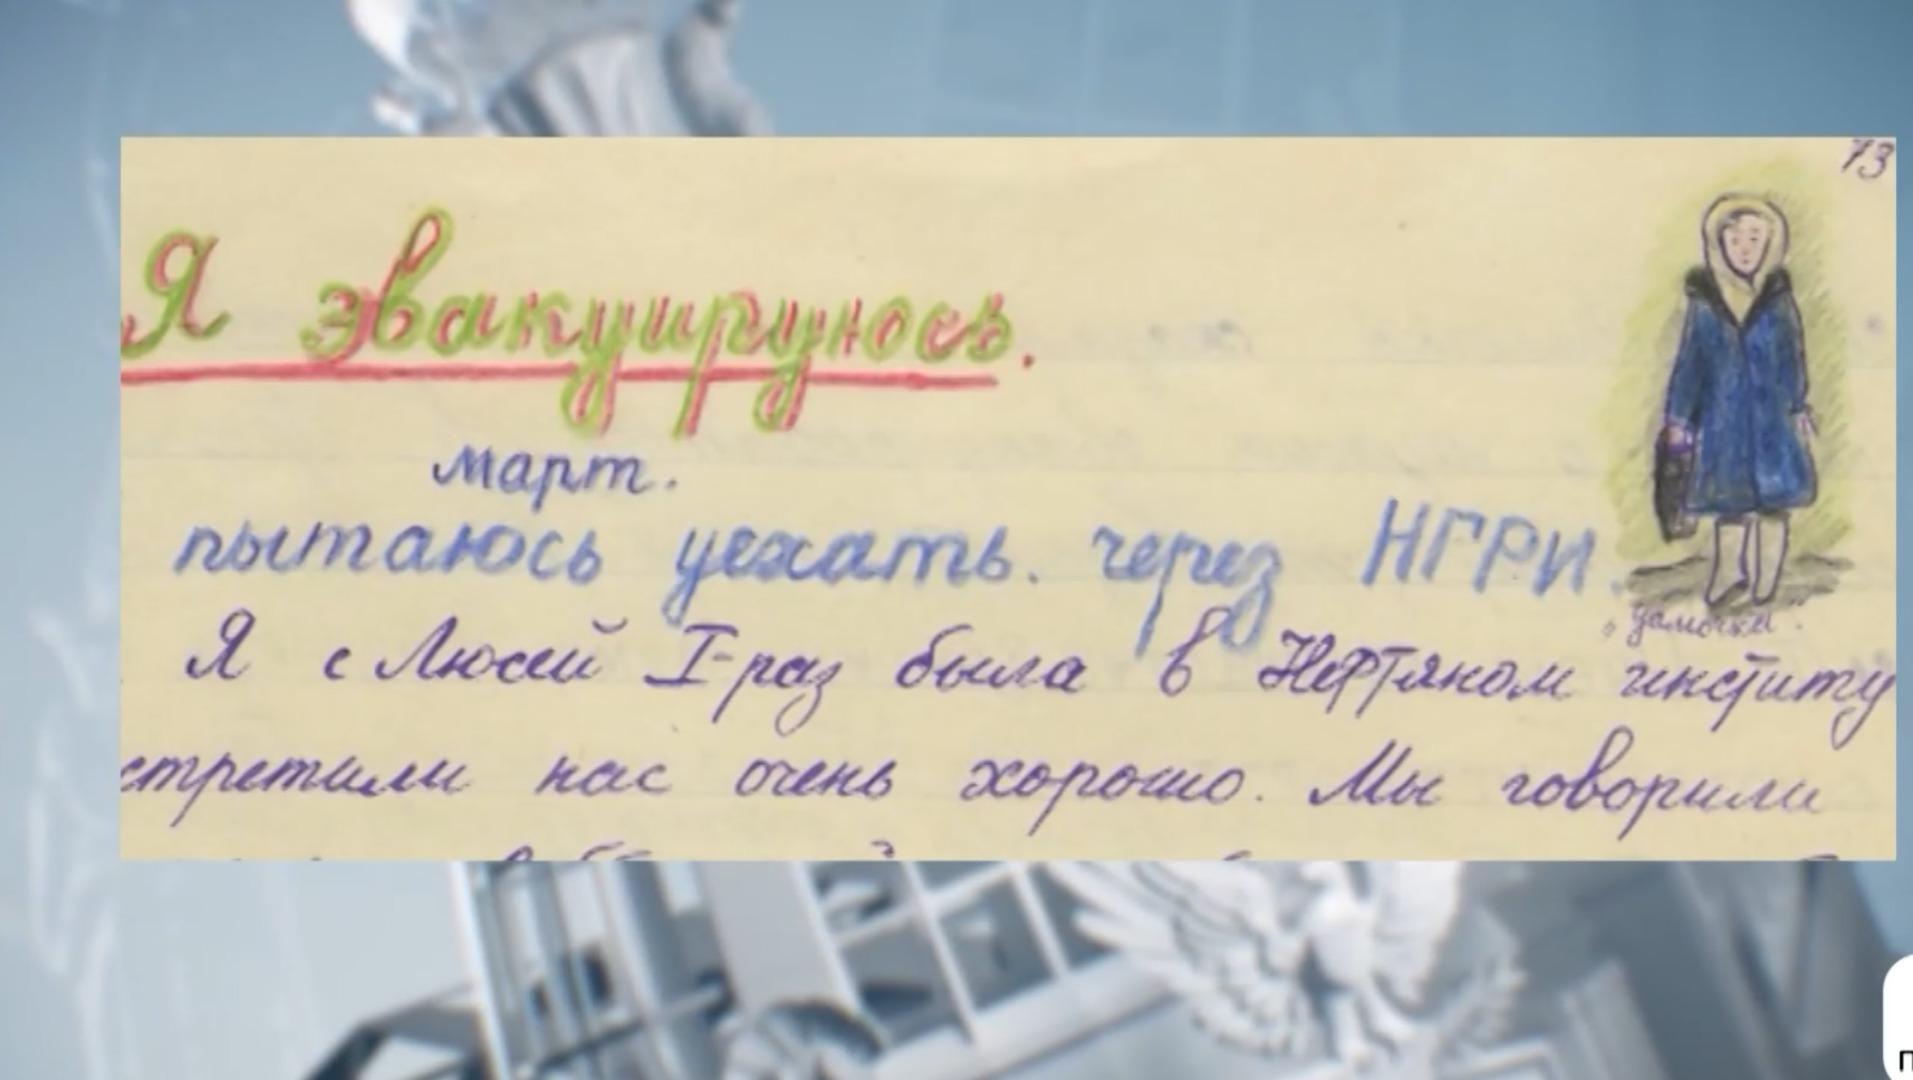 73
Я эвакуируюсь.
март.
пытаюсь уехать. через НГРИ.
Я с Люсей I-раз была в Нефтяном институ
стретили нас очень хорошо. Мы говорили